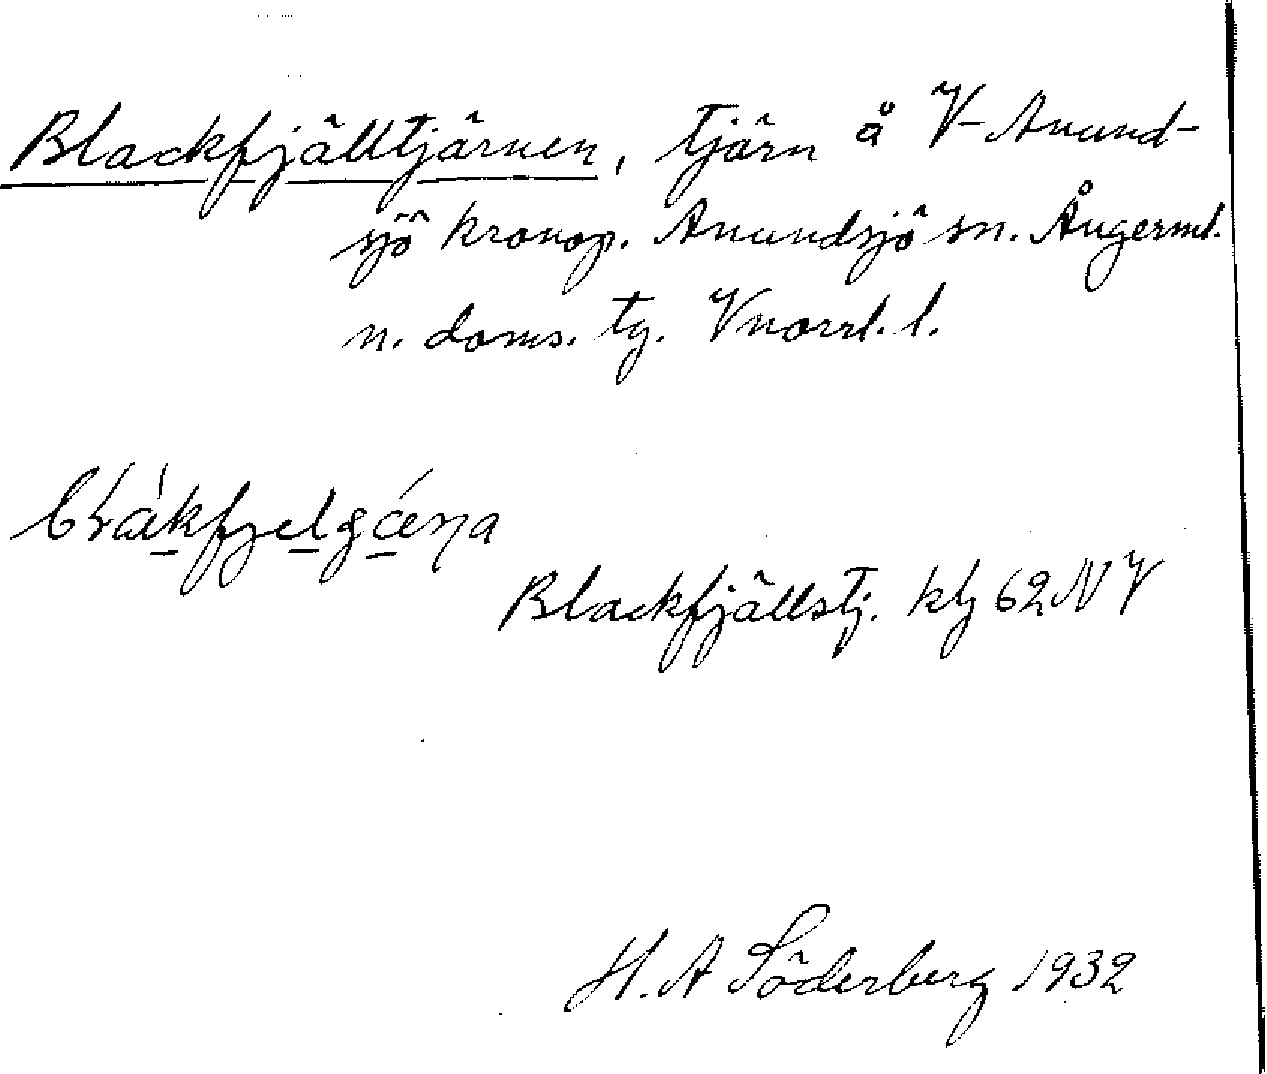 Blackfjälltjärnen, tjärn å V-Anund-
sjö kronop. Anundsjö sn. Ångerml.
n. doms. tg. Vnorrl. l.
Blackfjällstj. kbl 62 NV
H. A Söderberg 1932